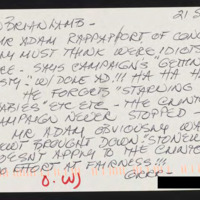 BRIAN LAMB - 21 S
MR ADAM RAPPAPORT OF CON
MUST THINK WERE IDIOTS
SAYS CAMPAIGN'S "GETTIN
W/ DOLE AD!!! HA HA H
HE FORGETS "STARVING
BABIES" ETC ETC - THE CLINTO
CAMPAIGN NEVER STOPPED
MR ADAM OBVIOUSLY WA
BROUGHT DOWN "STONEW
DOESN'T APPLY TO THE
EFFORT AT FAIRNESS!!!
D. WJ